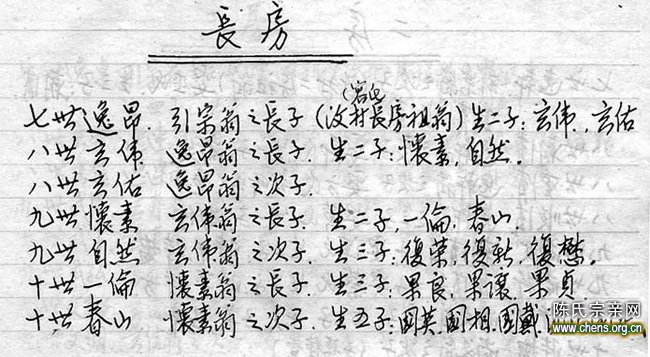 長房
七世逸昂. 引宗翁之長子(汶村長房祖翁)生二子:玄伟、玄佑
八世玄伟 逸昂翁之長子. 生二子:懷素,自然.
八世玄佑 逸昂翁之次子.
九世懷素 玄伟翁之長子. 生二子,一倫.春山.
九世自然 玄伟翁之次子. 生三子:復荣,復新,復懋.
十世一倫 懷素翁之長子. 生三子:果良,果讓,果貞
十世春山 懷素翁之次子. 生五子:國英.國相.國戴.
陈氏宗亲网
www.chens.org.cn